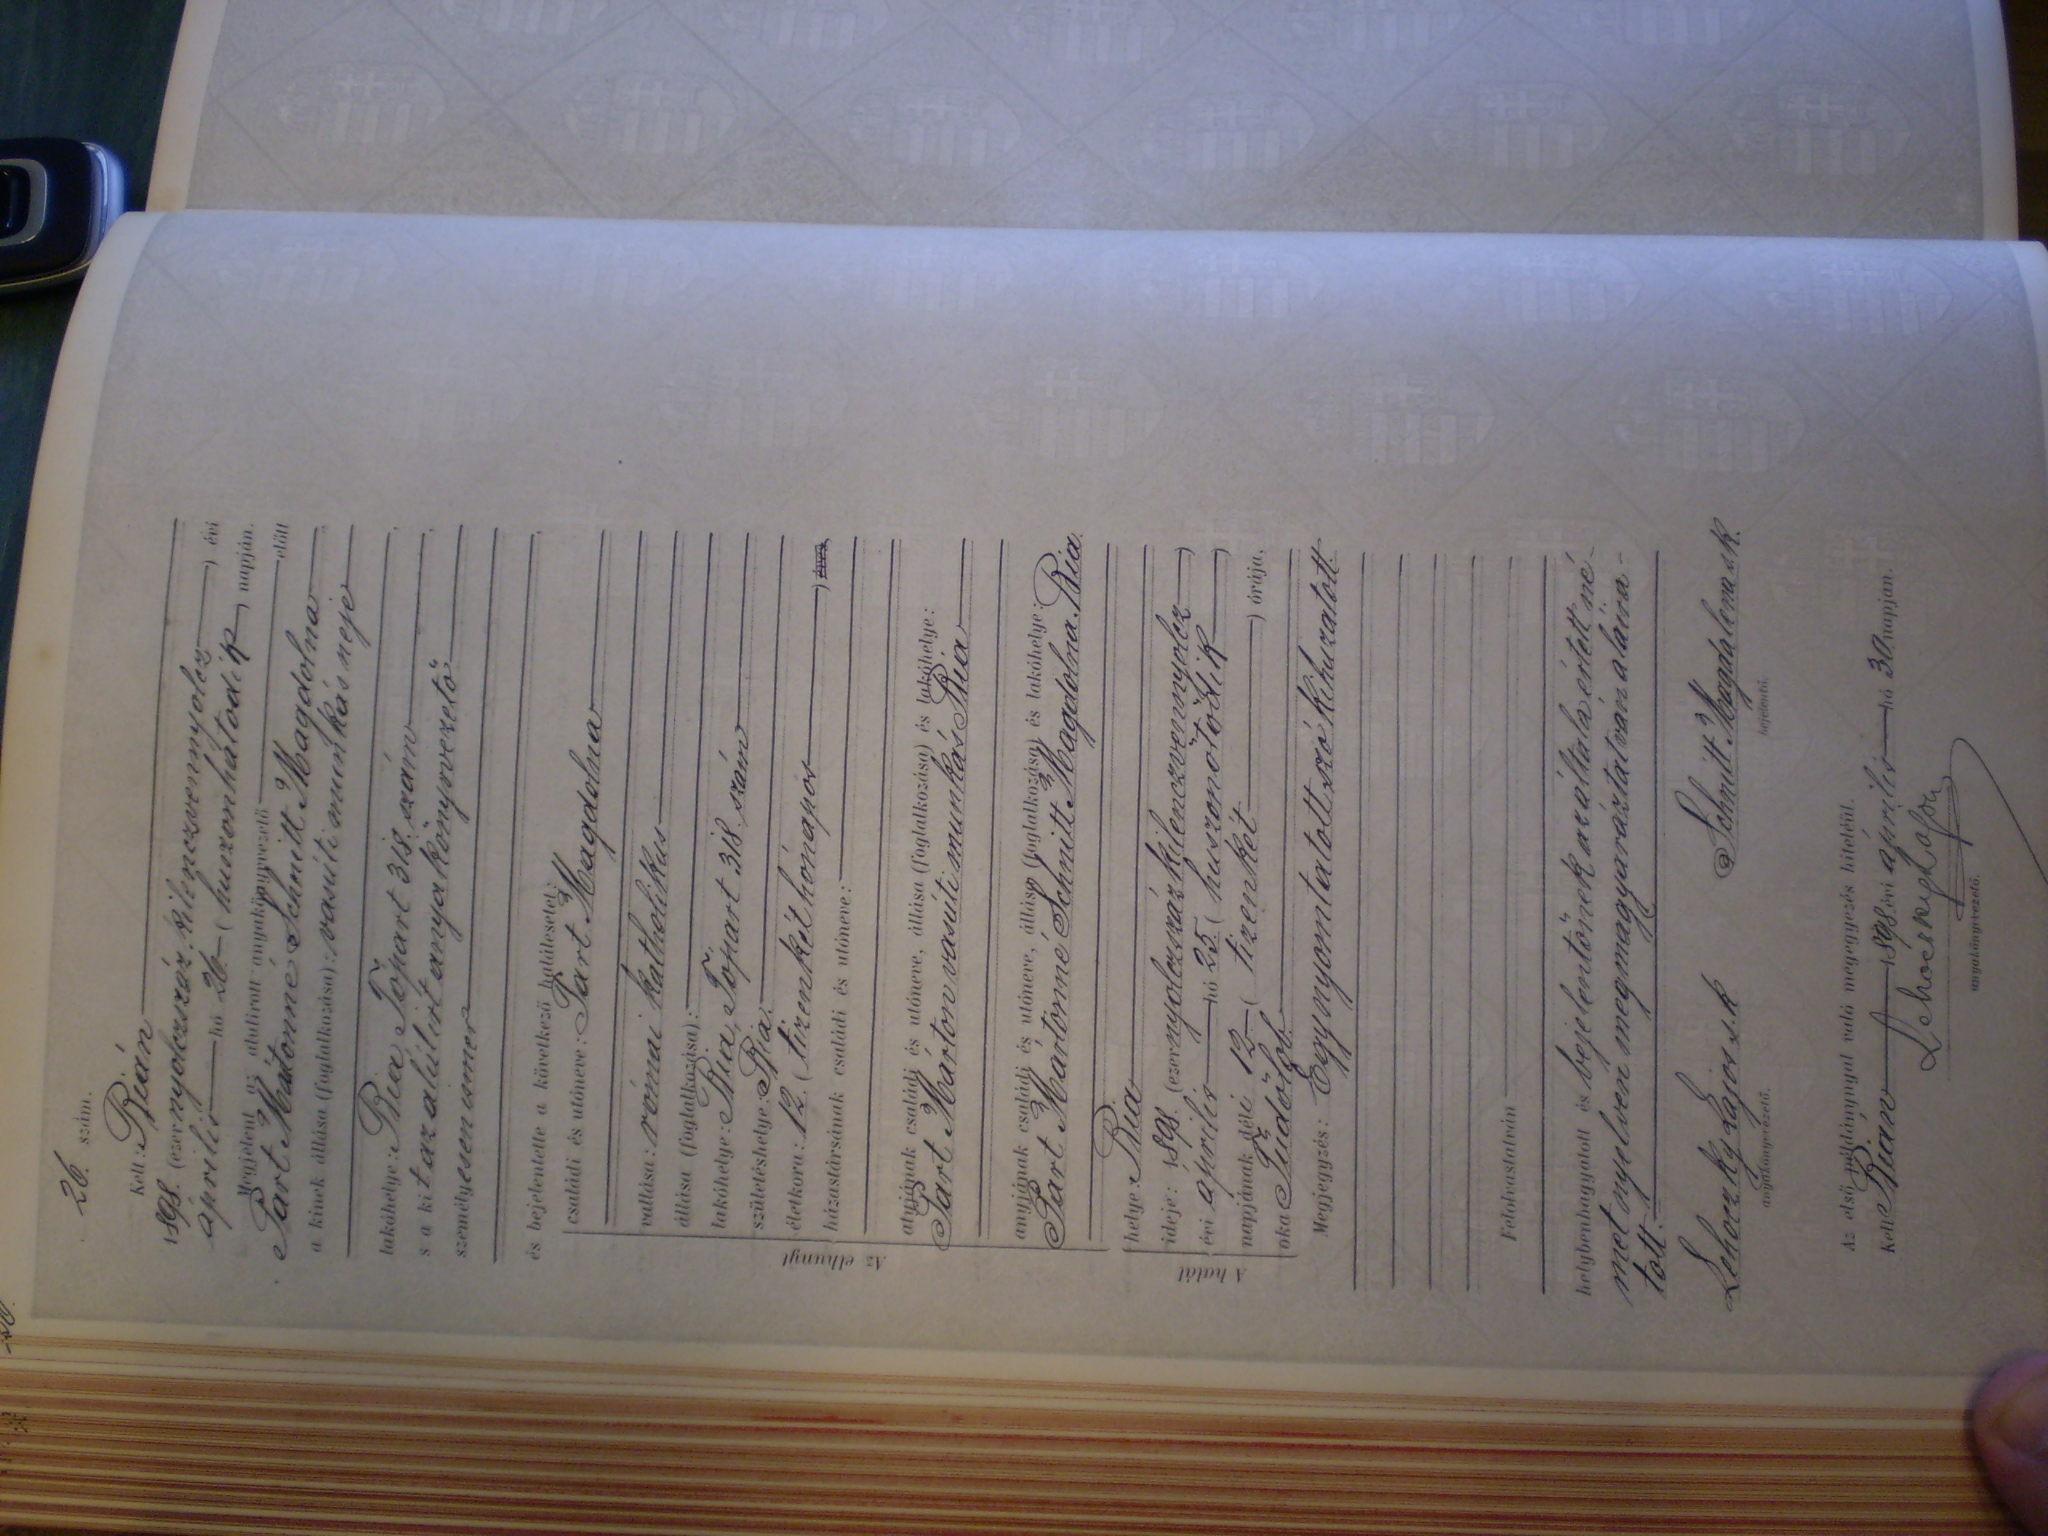 26. szám.
Kelt: Bián
1898. (ezernyolczszáz kilenczvennyolcz) évi
április hó 26 (huszonhatodik) napján.
Megjelent az alulirott anyakönyvvezető előtt
Part Mártonné Schmitt Magdolna
a kinek állása (foglalkozása): vasúti munkás neje
lakóhelye: Bia, Tópart 318. szám
s a kit az alúlirt anyakönyvvezető
személyesen ismer
és bejelentette a következő halálesetet:
Az elhunyt
családi és utóneve: Part Magdolna
vallása: római katholikus
állása (foglalkozása):
lakóhelye: Bia, Tópart 318. szám
születéshelye: Bia.
életkora: 12 (tizenkét hónapos) éves
házastársának családi és utóneve:
atyjának családi és utóneve, állása (foglalkozása) és lakóhelye:
Part Márton vasúti munkás Bia
anyjának családi és utóneve, állása (foglalkozása) és lakóhelye:
Part Mártonné Schmitt Magdolna. Bia.
A halál
helye: Bia
ideje: 1898. (ezernyolczszázkilenczvennyolcz)
évi április hó 25 (huszonötödik)
napjának déli 12 (tizenkét) órája.
oka Tüdőlob.
Megjegyzés: Egy nyomtatott szó kihuzatott.
Felolvastatván
helybenhagyatott és bejelentőnek az általa értett né-
met nyelven megmagyaráztatván aláíra-
tott.
Lehoczky Lajos s.k. Schmitt Magdalena s.k.
anyakönyvvezető. bejelentő.
Az első példánynyal való megegyezés hiteléül.
Kelt Bián 1898. évi április hó 30 napján.
Lehoczky Lajos
anyakönyvvezető.